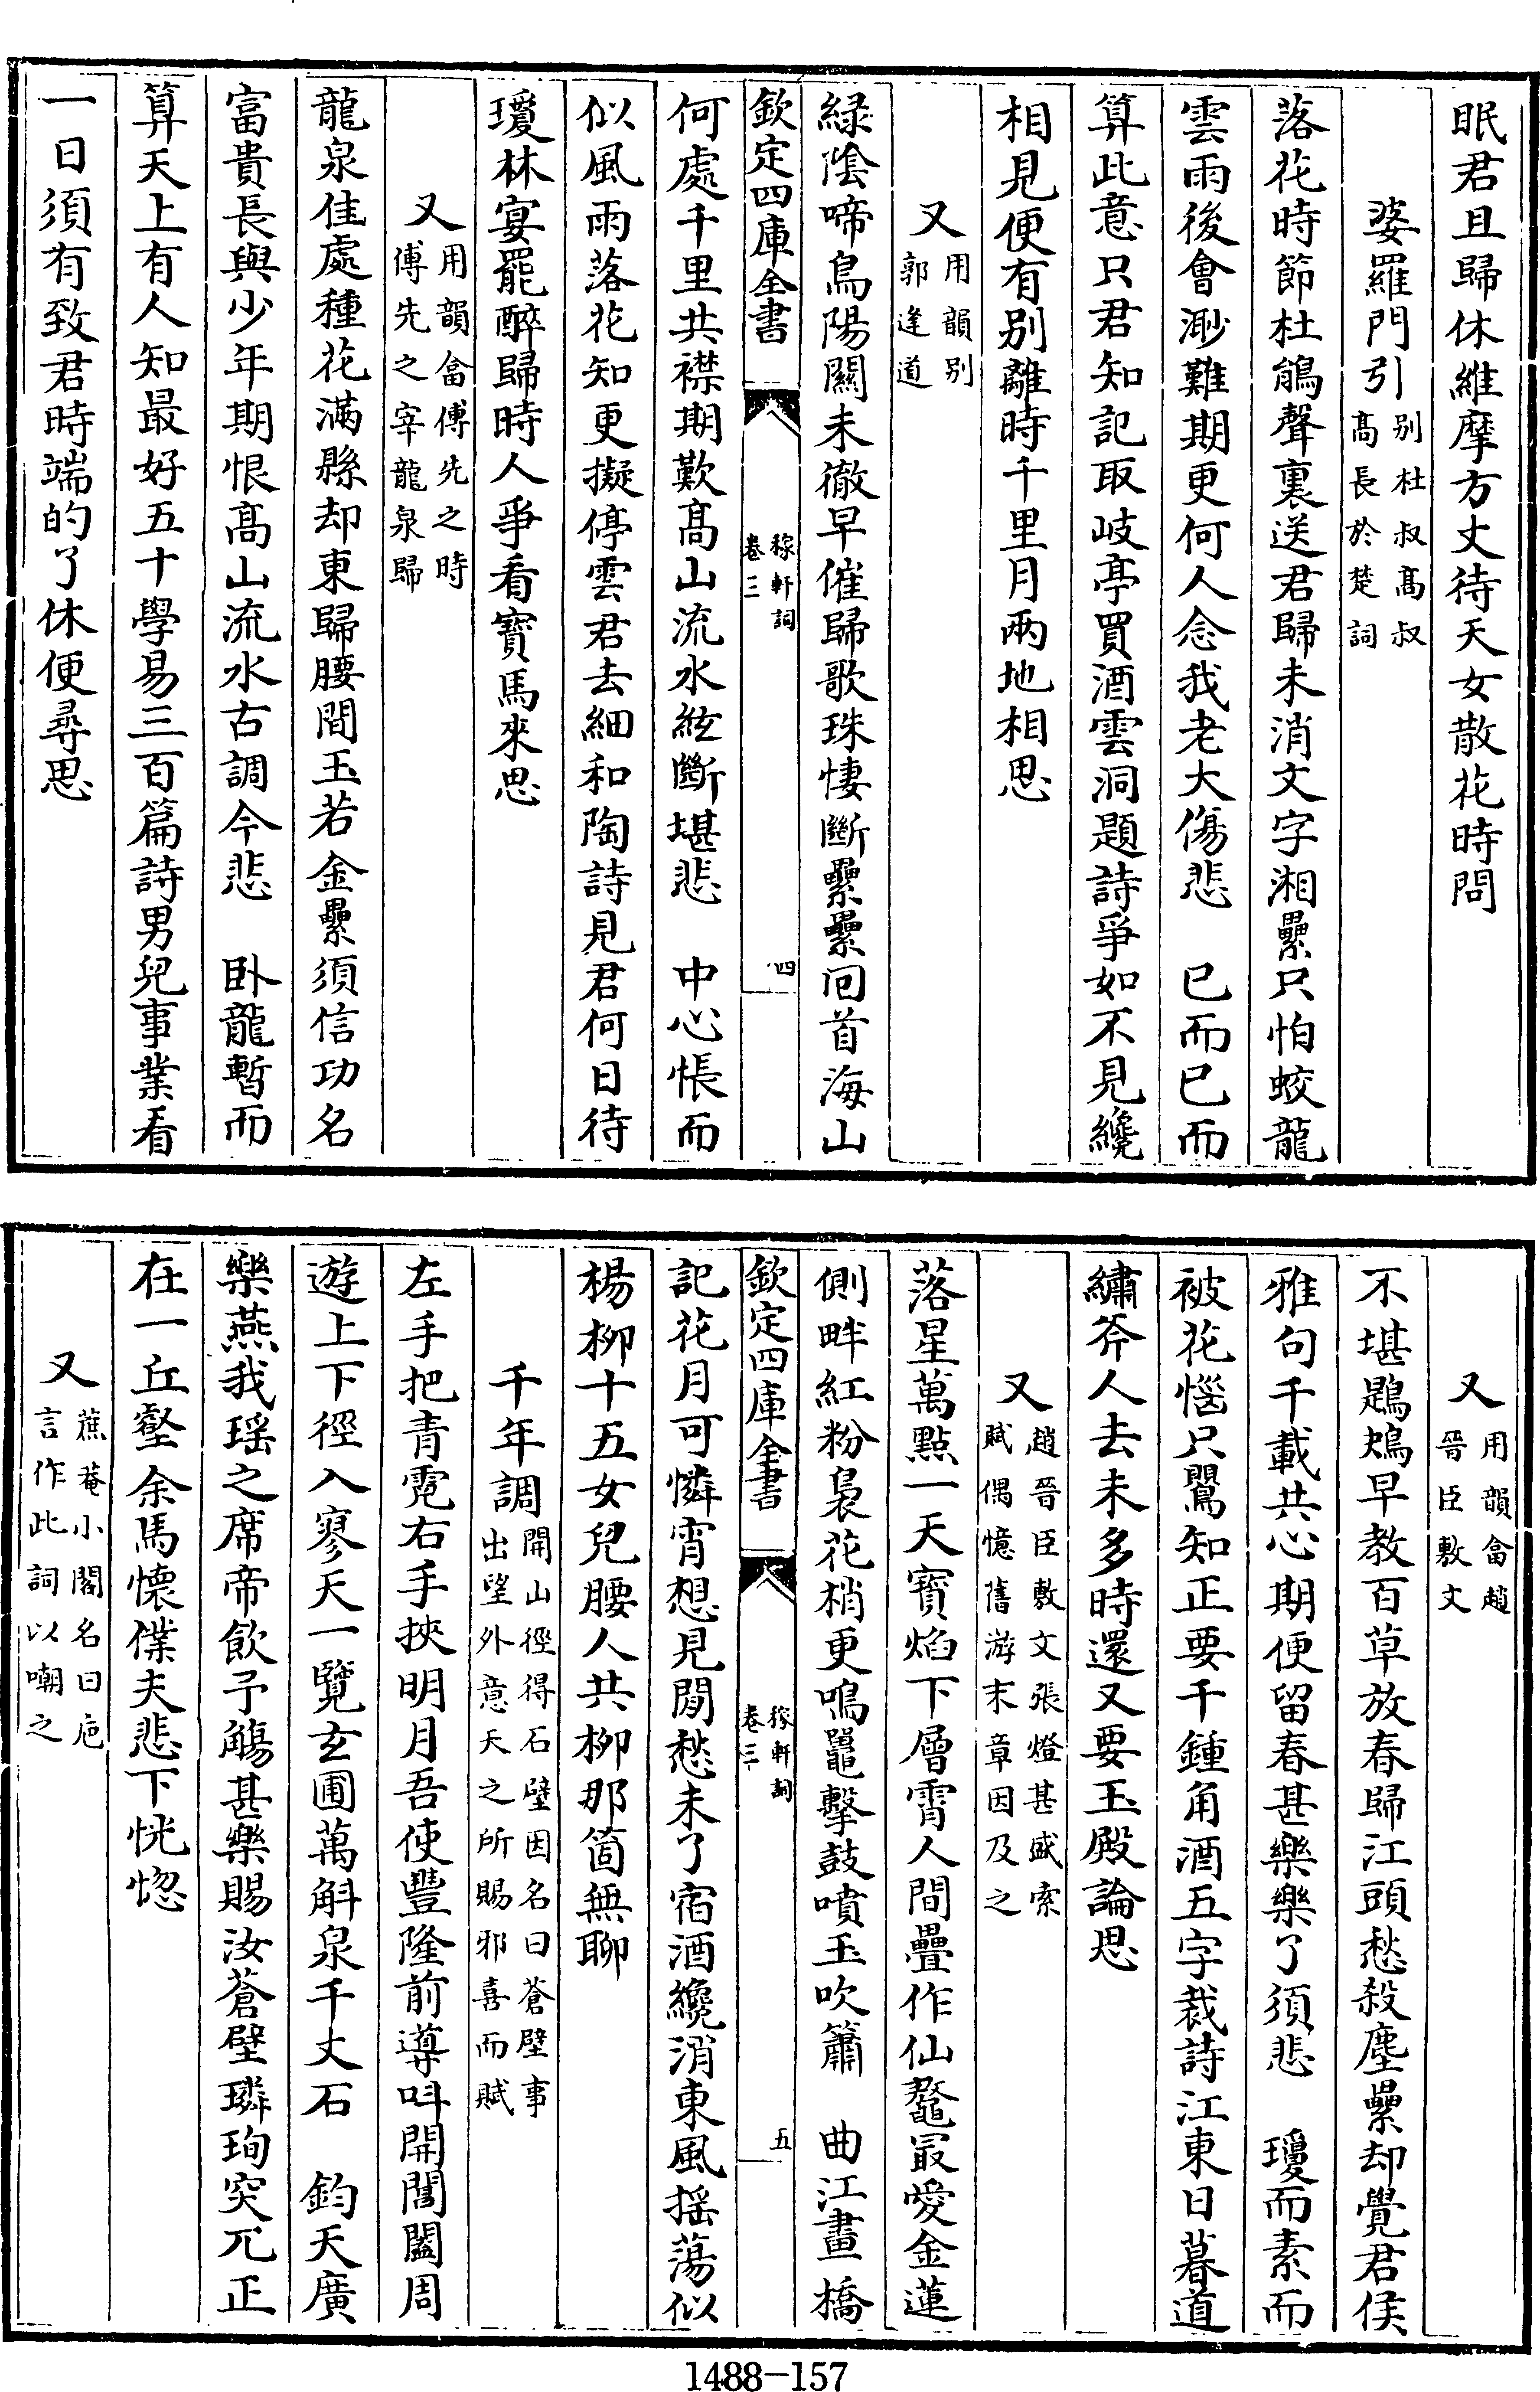 眠君且歸休維摩方丈待天女散花時問
婆羅門引別杜叔髙叔
髙長於楚詞
落花時節杜鵑聲裏送君歸未消文字湘纍只怕蛟龍
雲雨後會渺難期更何人念我老大傷悲　已而已而
算此意只君知記取岐亭買酒雲洞題詩爭如不見纔
相見便有别離時千里月兩地相思
又用韻别
郭逢道
緑陰啼鳥陽關未徹早催歸歌珠悽斷纍纍回首海山
欽定四庫全書
稼軒詞
卷三
四
何處千里共襟期歎髙山流水絃斷堪悲　中心悵而
似風雨落花知更擬停雲君去細和陶詩見君何日待
瓊林宴罷醉歸時人爭看寳馬來思
又用韻畣傅先之時
傅先之宰龍泉歸
龍泉佳處種花滿縣却東歸腰間玉若金纍須信功名
富貴長與少年期恨髙山流水古調今悲　卧龍暫而
算天上有人知最好五十學易三百篇詩男兒事業看
一日須有致君時端的了休便尋思
又用韻畣趙
晉臣敷文
不堪鶗鴂早教百草放春歸江頭愁殺塵纍却覺君侯
雅句千載共心期便留春甚樂樂了須悲　瓊而素而
被花惱只鶯知正要千鍾角酒五字裁詩江東日暮道
繡斧人去未多時還又要玉殿論思
又趙晉臣敷文張燈甚盛索
賦偶憶舊游末章因及之
落星萬點一天寳焰下層霄人間疊作仙鼇最愛金蓮
側畔紅粉裊花梢更鳴鼉擊鼓噴玉吹簫　曲江畫橋
欽定四庫全書
稼軒詞
卷三
五
記花月可憐宵想見閒愁未了宿酒纔消東風摇蕩似
楊柳十五女兒腰人共柳那箇無聊
千年調開山徑得石壁因名曰蒼壁事
出望外意天之所賜邪喜而賦
左手把青霓右手挾明月吾使豐隆前導叫開閶闔周
遊上下徑入寥天一覽玄圃萬斛泉千丈石　鈞天廣
樂燕我瑶之席帝飲予觴甚樂賜汝蒼壁璘珣突兀正
在一丘壑余馬懷僕夫悲下恍惚
又蔗菴小閣名曰卮
言作此詞以嘲之
1488-157